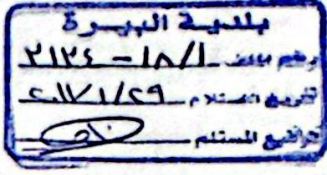 بلدية البيرة
رقم الملف ١٨/١ - ٢١٢٤
تاريخ الاستلام ٢٠١٧/١/٢٩
توقيع المستلم